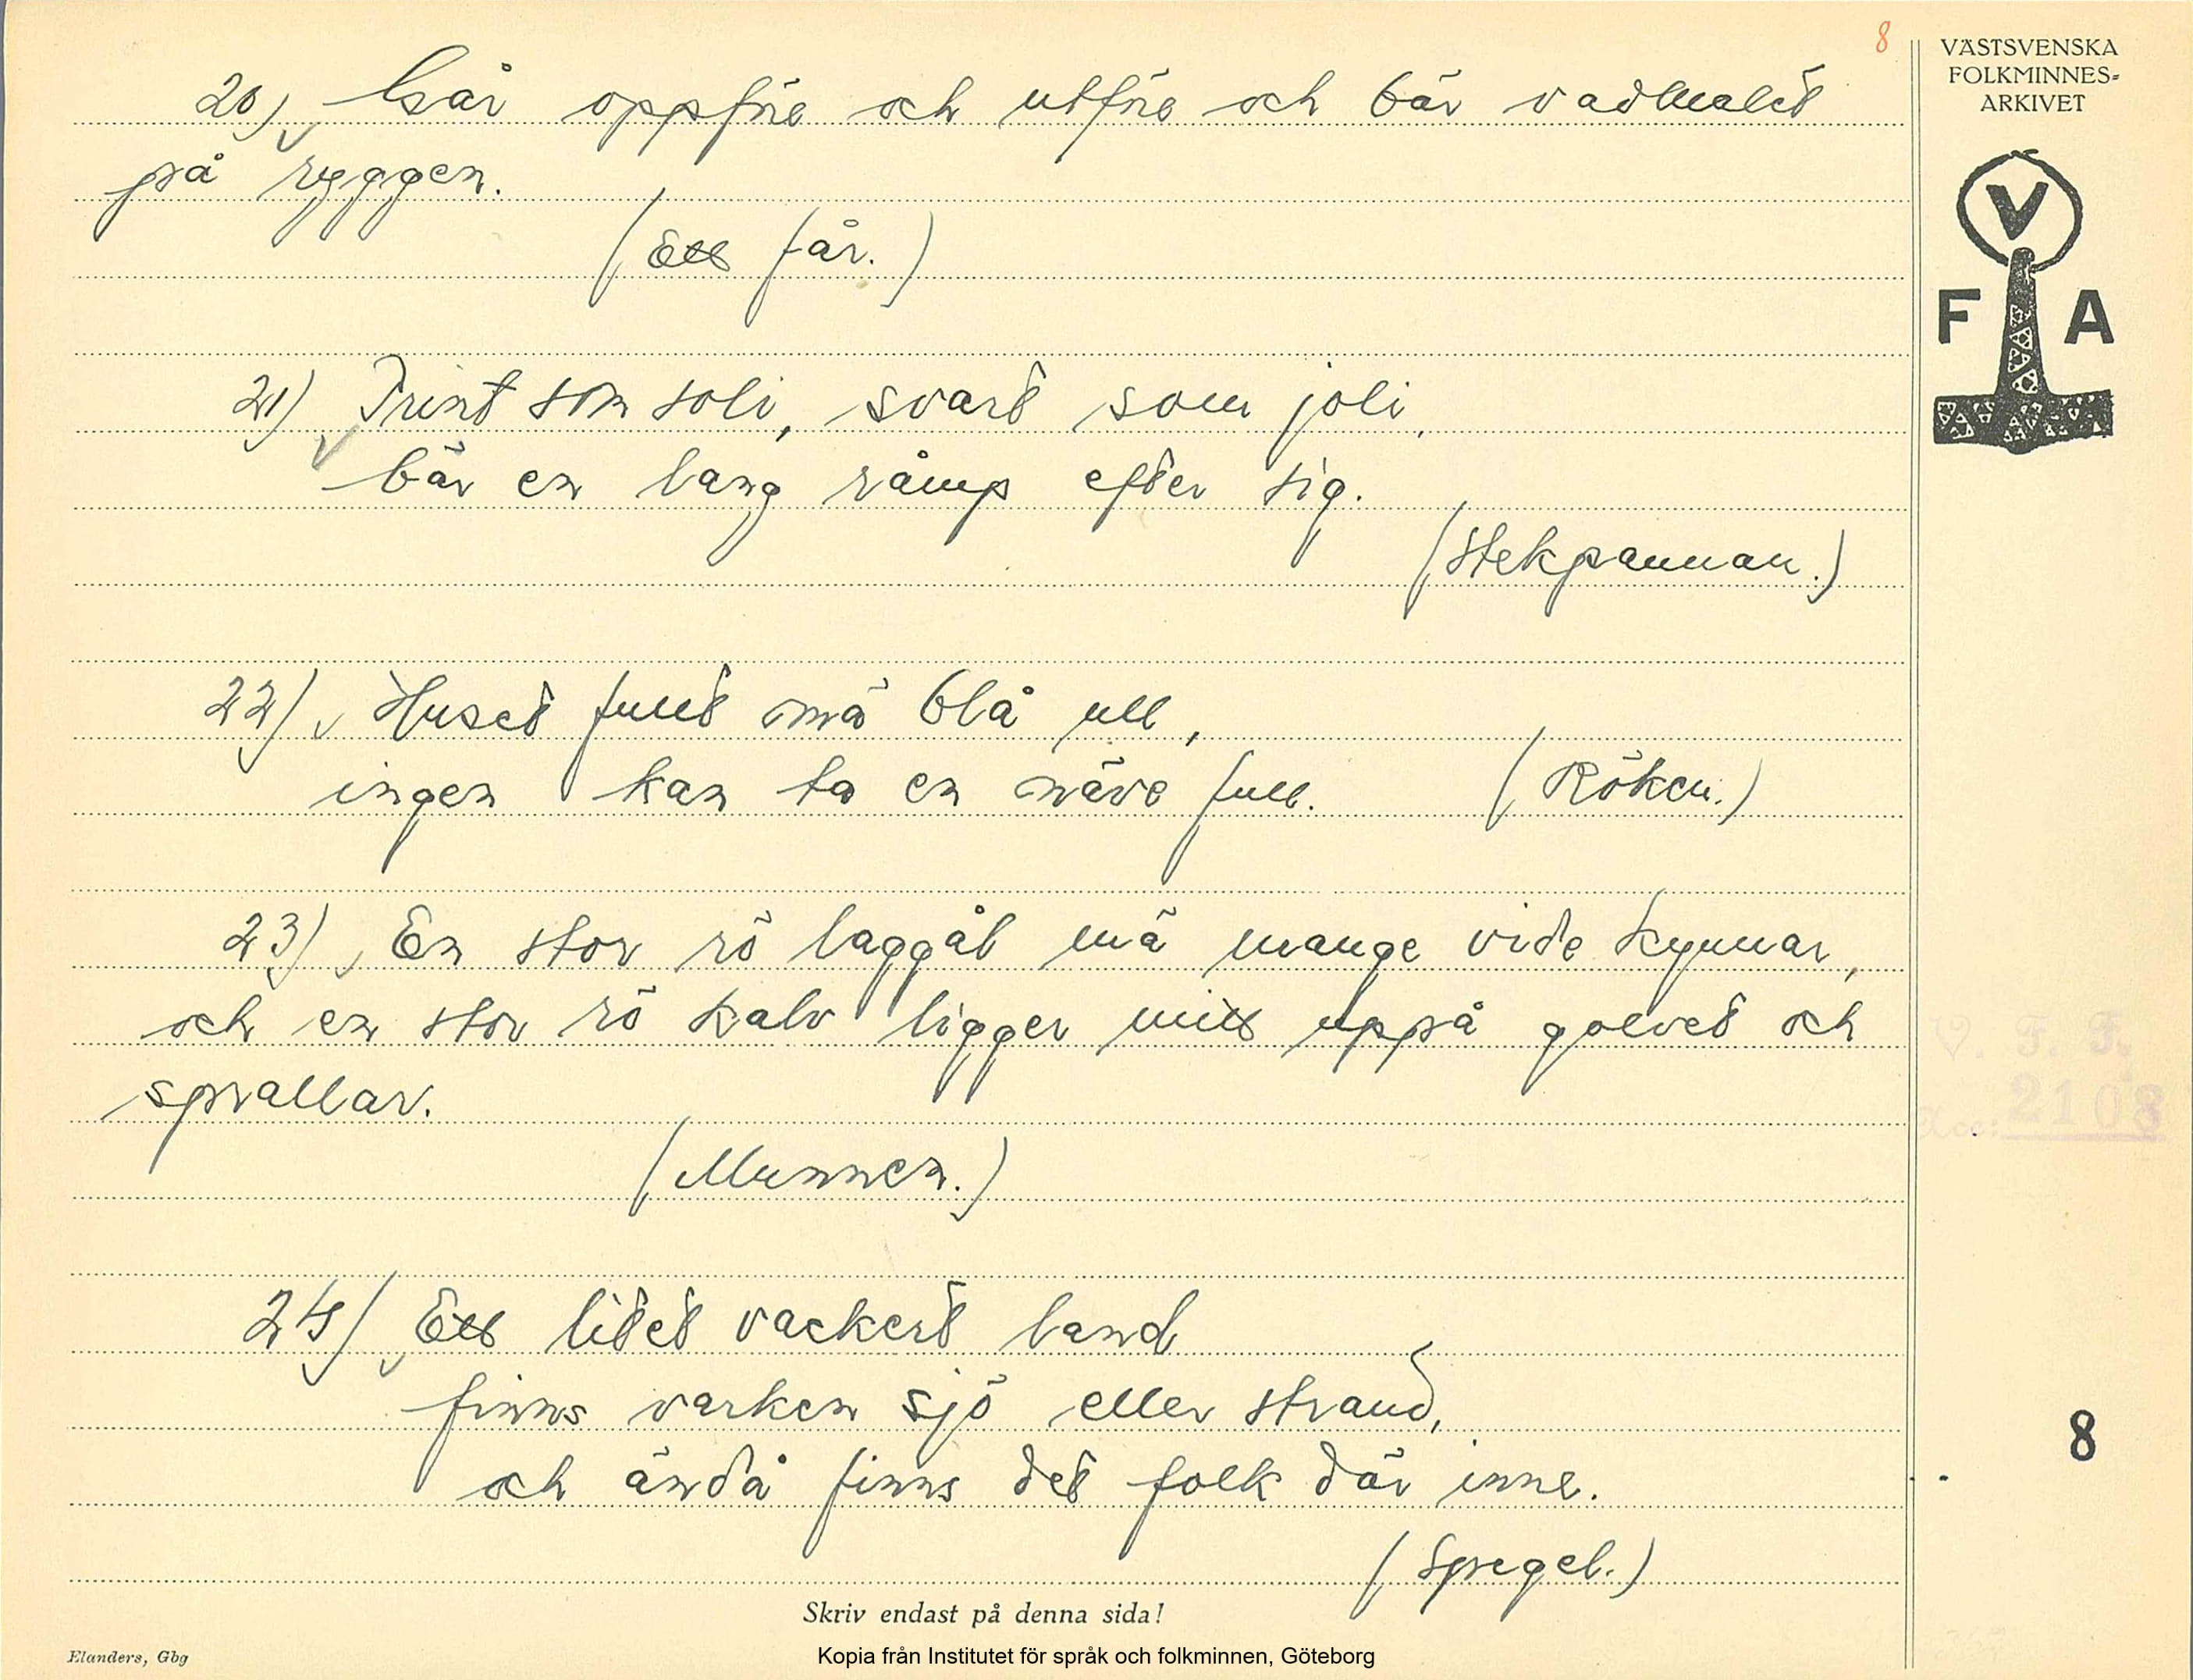 8
VÄSTSVENSKA
FOLKMINNES-
ARKIVET
V
F A
20) Går oppföe och utföe och bär vadmalet
på ryggen.
(Ett får.)
21) Trint som soli, svart som joli,
bär en lang råmp efter sig.
(Stekpannan.)
22) Huset fullt mä blå ull,
ingen kan ta en näve full. (Röken.)
23) En stor rö laggål mä mange vide kynnar,
och en stor rö kalv ligger mitt uppå golvet och
sprallar.
(Munnen.)
24) Ett litet vackert land
finns varken sjö eller strand,
och ändå finns det folk där inne.
(Spegel.)
V. F. F.
Acc: 2108
8
Skriv endast på denna sida!
Elanders, Gbg
Kopia från Institutet för språk och folkminnen, Göteborg